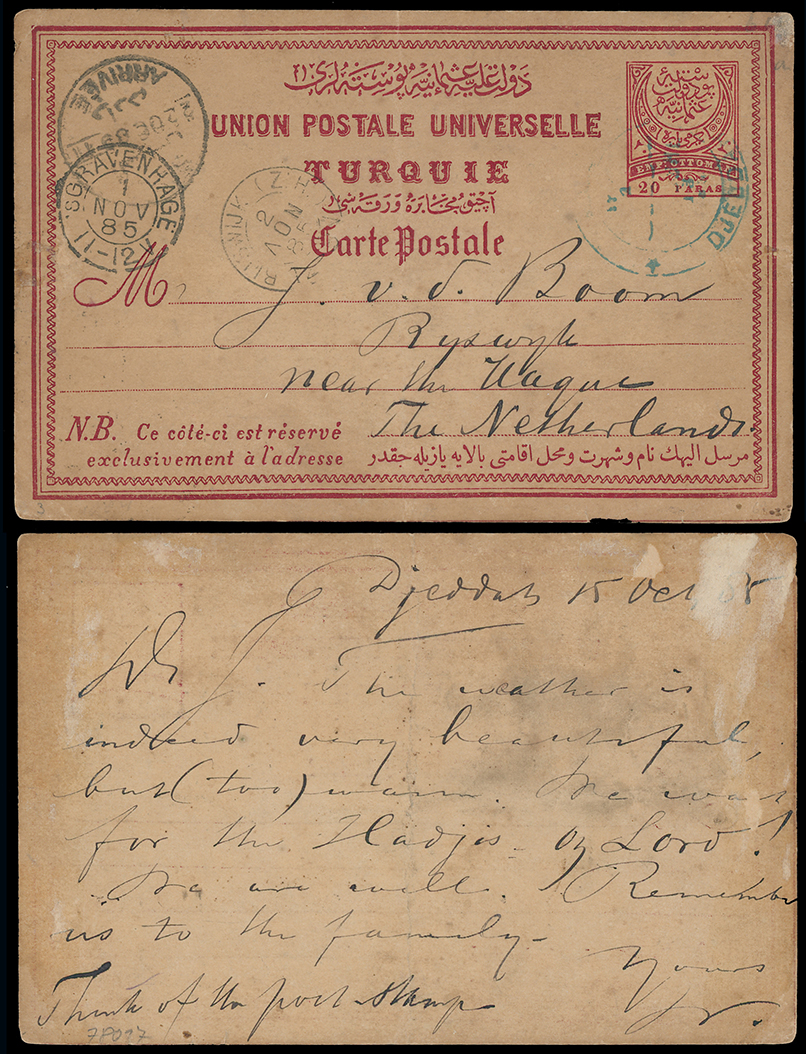 دولت عليه عثمانيه پوسته لرى
UNION POSTALE UNIVERSELLE
TURQUIE
آچيق مخابره ورقه سى
Carte Postale
EMP: OTTOMAN
20 PARAS
ARRIVÉE
'SGRAVENHAGE
1
NOV
85
11-12
RIJSWIJK (Z:H)
2
NOV
85
DJE
M J. v. d. Boom
Ryswyk
near the Hague
The Netherlands.
N.B. Ce côté-ci est réservé
exclusivement à l'adresse
مرسل اليهك نام و شهرت و محل اقامتى بالايه يازيله جقدر
3
Djeddah 15 Oct 85
J. The weather is
indeed very beautiful,
but (too) warm. We wait
for the Hadjis - Oh Lord!
We are well. Remember
us to the family -
Yours
Think of the post stamp